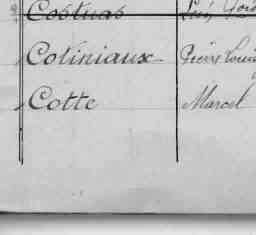 Costuas
Cotiniaux Pierre Louis
Cotte Marcel